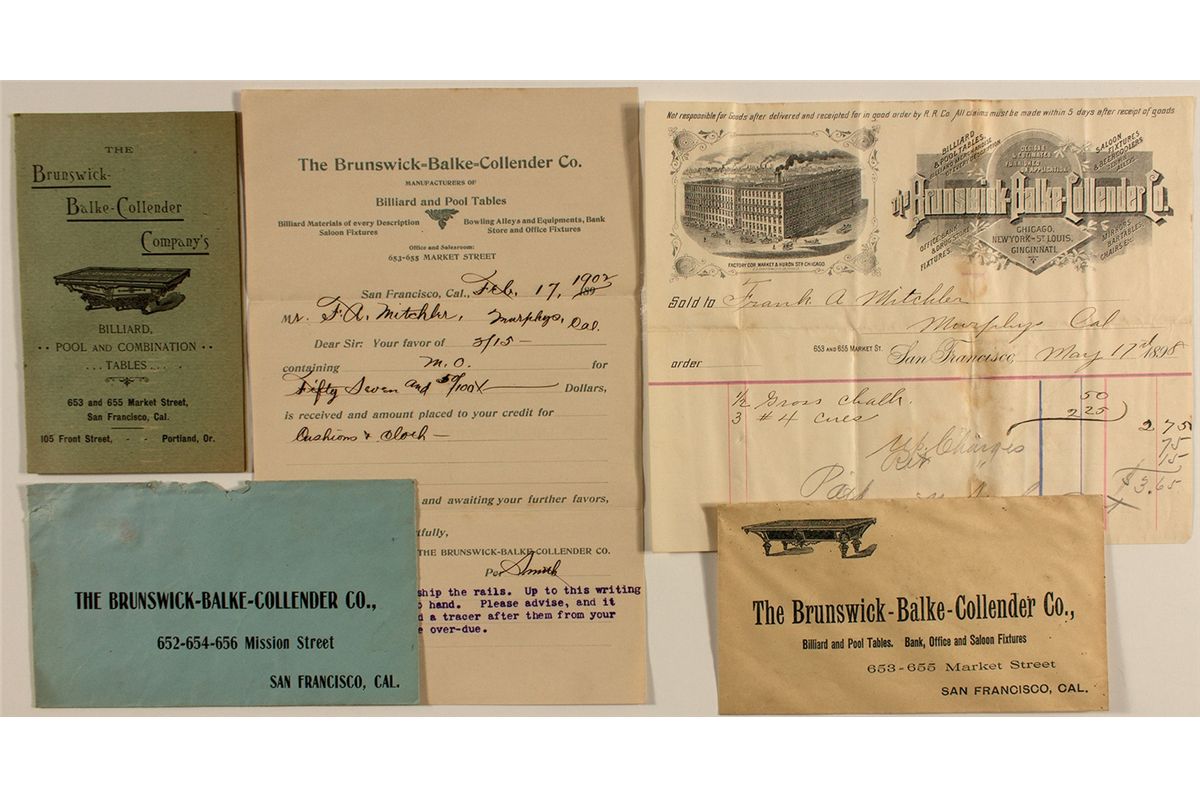 THE
BRUNSWICK-
BALKE-COLLENDER
COMPANY'S
BILLIARD,
POOL AND COMBINATION
TABLES
653 and 655 Market Street,
San Francisco, Cal.
105 Front Street, - - Portland, Or.
The Brunswick-Balke-Collender Co.
MANUFACTURERS OF
Billiard and Pool Tables
Billiard Materials of every Description
Saloon Fixtures
Bowling Alleys and Equipments, Bank
Store and Office Fixtures
Office and Salesroom:
653-655 MARKET STREET
San Francisco, Cal., Feb. 17, 1902
Mr. F. A. Mitchler, Murphys, Cal.
Dear Sir: Your favor of 2/15 —
containing M.O. for
Fifty Seven and 50/100 Dollars,
is received and amount placed to your credit for
Cushions & Cloth —
and awaiting your further favors,
tfully,
THE BRUNSWICK-BALKE-COLLENDER CO.
Per Smith
ship the rails. Up to this writing
hand. Please advise, and it
a tracer after them from your
over-due.
Not responsible for Goods after delivered and receipted for in good order by R. R. Co. All claims must be made within 5 days after receipt of goods
BILLIARD
& POOL TABLES.
DESIGNS
& ESTIMATES
FURNISHED
ON APPLICATION
SALOON
FIXTURES
& BEER COOLERS
The Brunswick-Balke-Collender Co.
CHICAGO,
NEW YORK-ST LOUIS,
CINCINNATI.
OFFICE, BANK
& DRUGSTORE
FIXTURES
MIRRORS
BAR TABLES
CHAIRS ETC.
FACTORY COR. MARKET & HURON STS CHICAGO.
Sold to Frank A Mitchler
Murphys Cal
653 AND 655 MARKET ST. San Francisco, May 17th 1898
order
1/2 Gross Chalk. 50
3 #4 cues 2 25
2 75
Charges 75
15
Paid $3.65
THE BRUNSWICK-BALKE-COLLENDER CO.,
652-654-656 Mission Street
SAN FRANCISCO, CAL.
The Brunswick-Balke-Collender Co.,
Billiard and Pool Tables. Bank, Office and Saloon Fixtures
653-655 Market Street
SAN FRANCISCO, CAL.